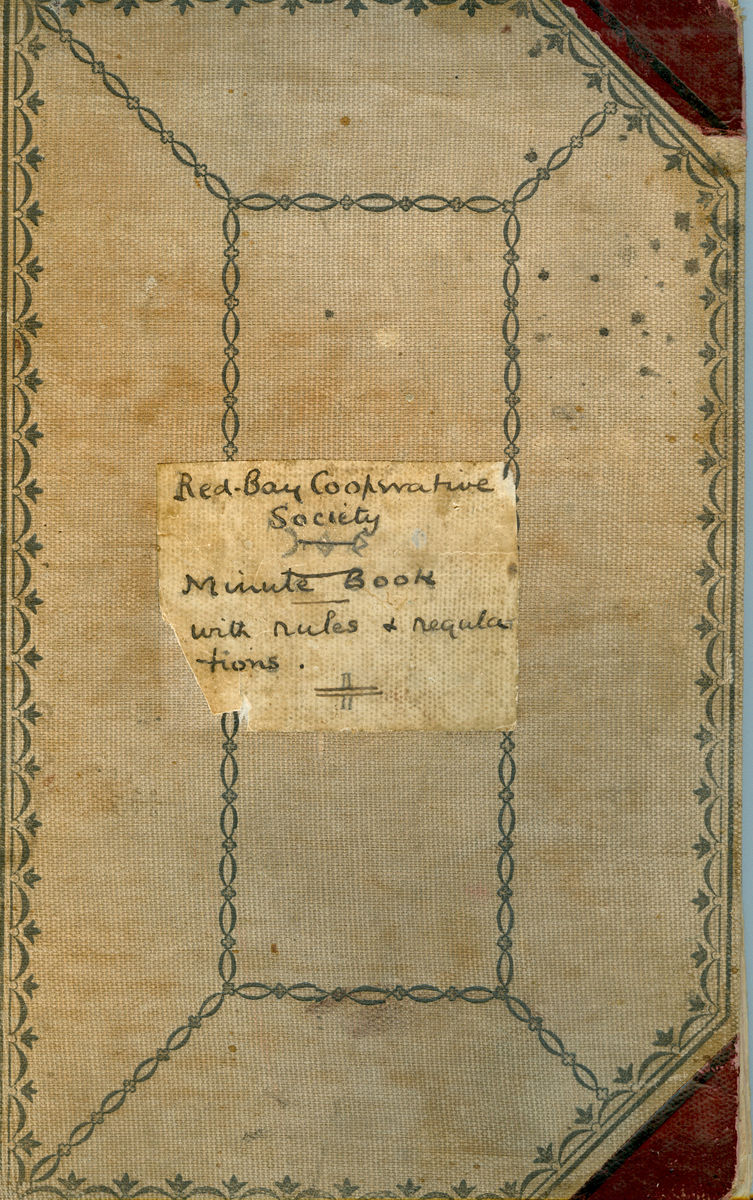 Red-Bay Cooperative
Society
Minute Book
with rules & regula
tions.